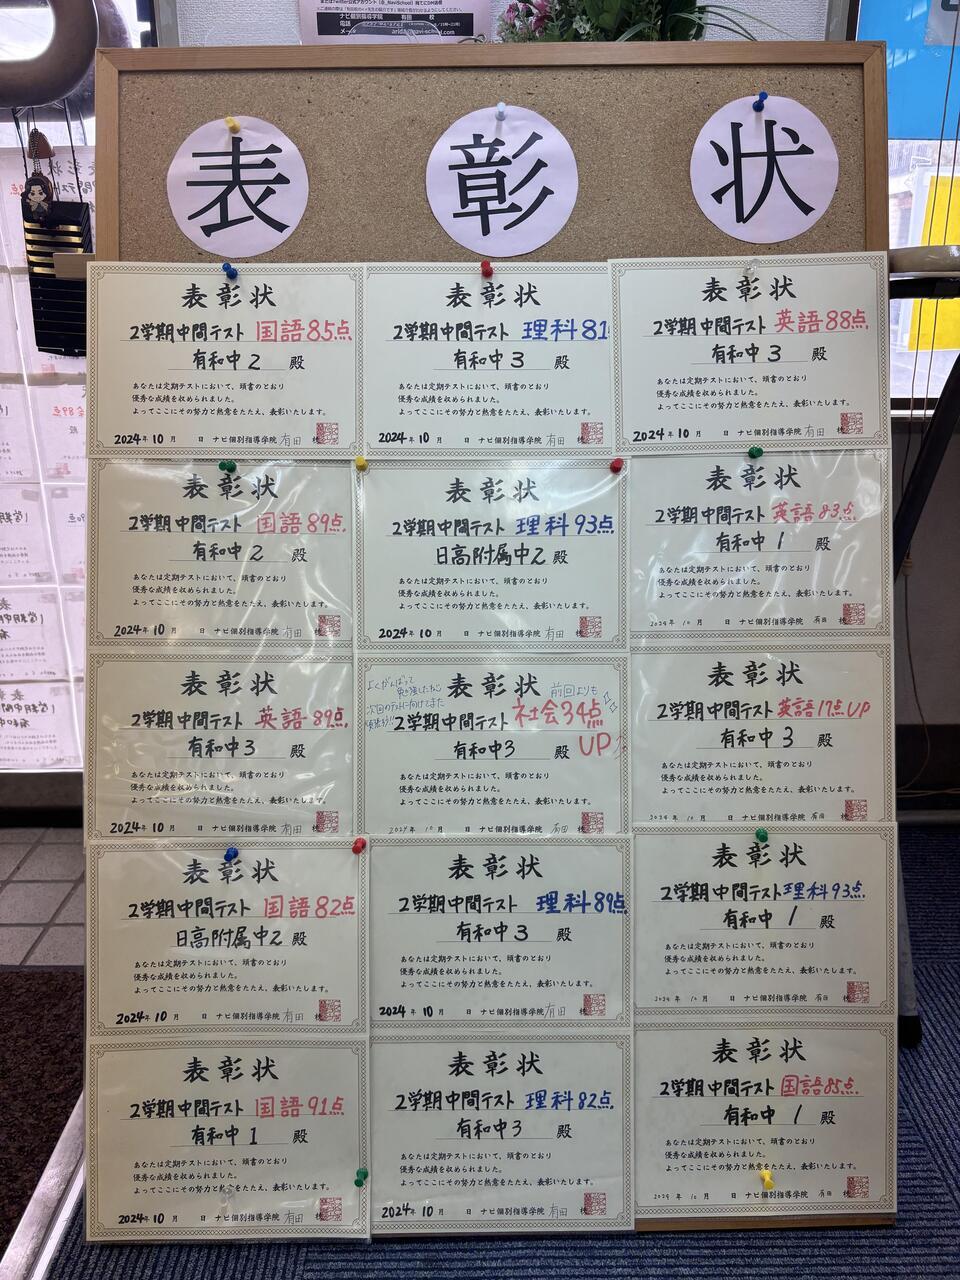 ナビ個別指導学院 有田 校
表 彰 状
表彰状
2学期中間テスト 国語85点
有和中2 殿
あなたは定期テストにおいて、頭書のとおり
優秀な成績を収められました。
よってここにその努力と熱意をたたえ、表彰いたします。
2024年10月 日 ナビ個別指導学院 有田 校
表彰状
2学期中間テスト 理科81
有和中3 殿
あなたは定期テストにおいて、頭書のとおり
優秀な成績を収められました。
よってここにその努力と熱意をたたえ、表彰いたします。
2024年10月 日 ナビ個別指導学院 有田 校
表彰状
2学期中間テスト 英語88点
有和中3 殿
あなたは定期テストにおいて、頭書のとおり
優秀な成績を収められました。
よってここにその努力と熱意をたたえ、表彰いたします。
2024年10月 日 ナビ個別指導学院 有田 校
表彰状
2学期中間テスト 国語89点
有和中2 殿
あなたは定期テストにおいて、頭書のとおり
優秀な成績を収められました。
よってここにその努力と熱意をたたえ、表彰いたします。
2024年10月 日 ナビ個別指導学院 有田 校
表彰状
2学期中間テスト 理科93点
日高附属中2 殿
あなたは定期テストにおいて、頭書のとおり
優秀な成績を収められました。
よってここにその努力と熱意をたたえ、表彰いたします。
2024年10月 日 ナビ個別指導学院 有田 校
表彰状
2学期中間テスト 英語83点
有和中1 殿
あなたは定期テストにおいて、頭書のとおり
優秀な成績を収められました。
よってここにその努力と熱意をたたえ、表彰いたします。
2024年10月 日 ナビ個別指導学院 有田 校
表彰状
2学期中間テスト 英語89点
有和中3 殿
あなたは定期テストにおいて、頭書のとおり
優秀な成績を収められました。
よってここにその努力と熱意をたたえ、表彰いたします。
2024年10月 日 ナビ個別指導学院 有田 校
よくがんばって
勉強したね
次回のテストに向けてまた
頑張ろう!!
表彰状 前回よりも
2学期中間テスト 社会34点
有和中3 殿 UP
あなたは定期テストにおいて、頭書のとおり
優秀な成績を収められました。
よってここにその努力と熱意をたたえ、表彰いたします。
2024年10月 日 ナビ個別指導学院 有田 校
表彰状
2学期中間テスト 英語17点UP
有和中3 殿
あなたは定期テストにおいて、頭書のとおり
優秀な成績を収められました。
よってここにその努力と熱意をたたえ、表彰いたします。
2024年10月 日 ナビ個別指導学院 有田 校
表彰状
2学期中間テスト 国語82点
日高附属中2 殿
あなたは定期テストにおいて、頭書のとおり
優秀な成績を収められました。
よってここにその努力と熱意をたたえ、表彰いたします。
2024年10月 日 ナビ個別指導学院 有田 校
表彰状
2学期中間テスト 理科89点
有和中3 殿
あなたは定期テストにおいて、頭書のとおり
優秀な成績を収められました。
よってここにその努力と熱意をたたえ、表彰いたします。
2024年10月 日 ナビ個別指導学院 有田 校
表彰状
2学期中間テスト 理科93点
有和中1 殿
あなたは定期テストにおいて、頭書のとおり
優秀な成績を収められました。
よってここにその努力と熱意をたたえ、表彰いたします。
2024年10月 日 ナビ個別指導学院 有田 校
表彰状
2学期中間テスト 国語91点
有和中1 殿
あなたは定期テストにおいて、頭書のとおり
優秀な成績を収められました。
よってここにその努力と熱意をたたえ、表彰いたします。
2024年10月 日 ナビ個別指導学院 有田 校
表彰状
2学期中間テスト 理科82点
有和中3 殿
あなたは定期テストにおいて、頭書のとおり
優秀な成績を収められました。
よってここにその努力と熱意をたたえ、表彰いたします。
2024年10月 日 ナビ個別指導学院 有田 校
表彰状
2学期中間テスト 国語85点
有和中1 殿
あなたは定期テストにおいて、頭書のとおり
優秀な成績を収められました。
よってここにその努力と熱意をたたえ、表彰いたします。
2024年10月 日 ナビ個別指導学院 有田 校